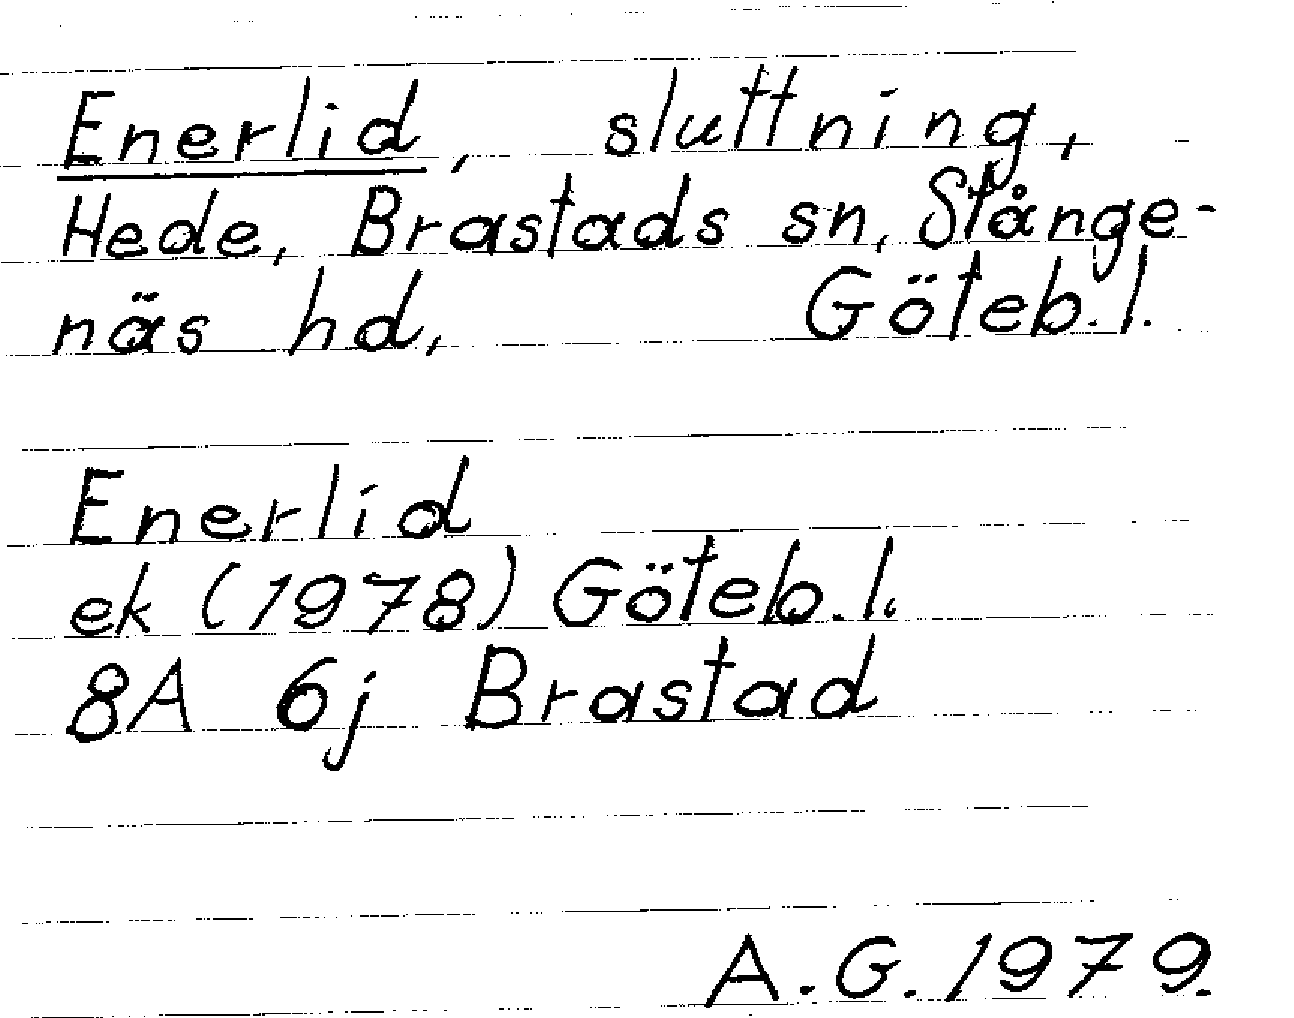 Enerlid, sluttning,
Hede, Brastads sn, Stånge-
näs hd, Göteb.l.
Enerlid
ek (1978) Göteb.l.
8A 6j Brastad
A.G. 1979.